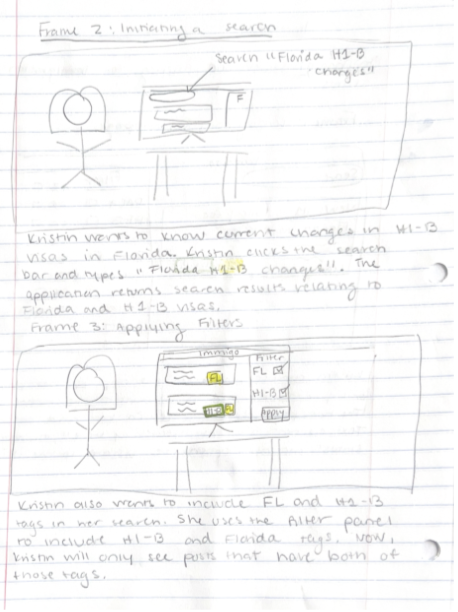 Frame 2: Initiating a search
Search "Florida H1-B
changes"
Kristin wants to know current changes in H1-B
visas in Florida. Kristin clicks the search
bar and types "Florida H1-B changes". The
application returns search results relating to
Florida and H1-B visas.
Frame 3: Applying Filters
Immigo
Filter
FL
FL
H1-B
H1-B FL
Apply
Kristin also wants to include FL and H1-B
tags in her search. She uses the filter panel
to include H1-B and Florida tags. Now,
Kristin will only see posts that have both of
those tags.